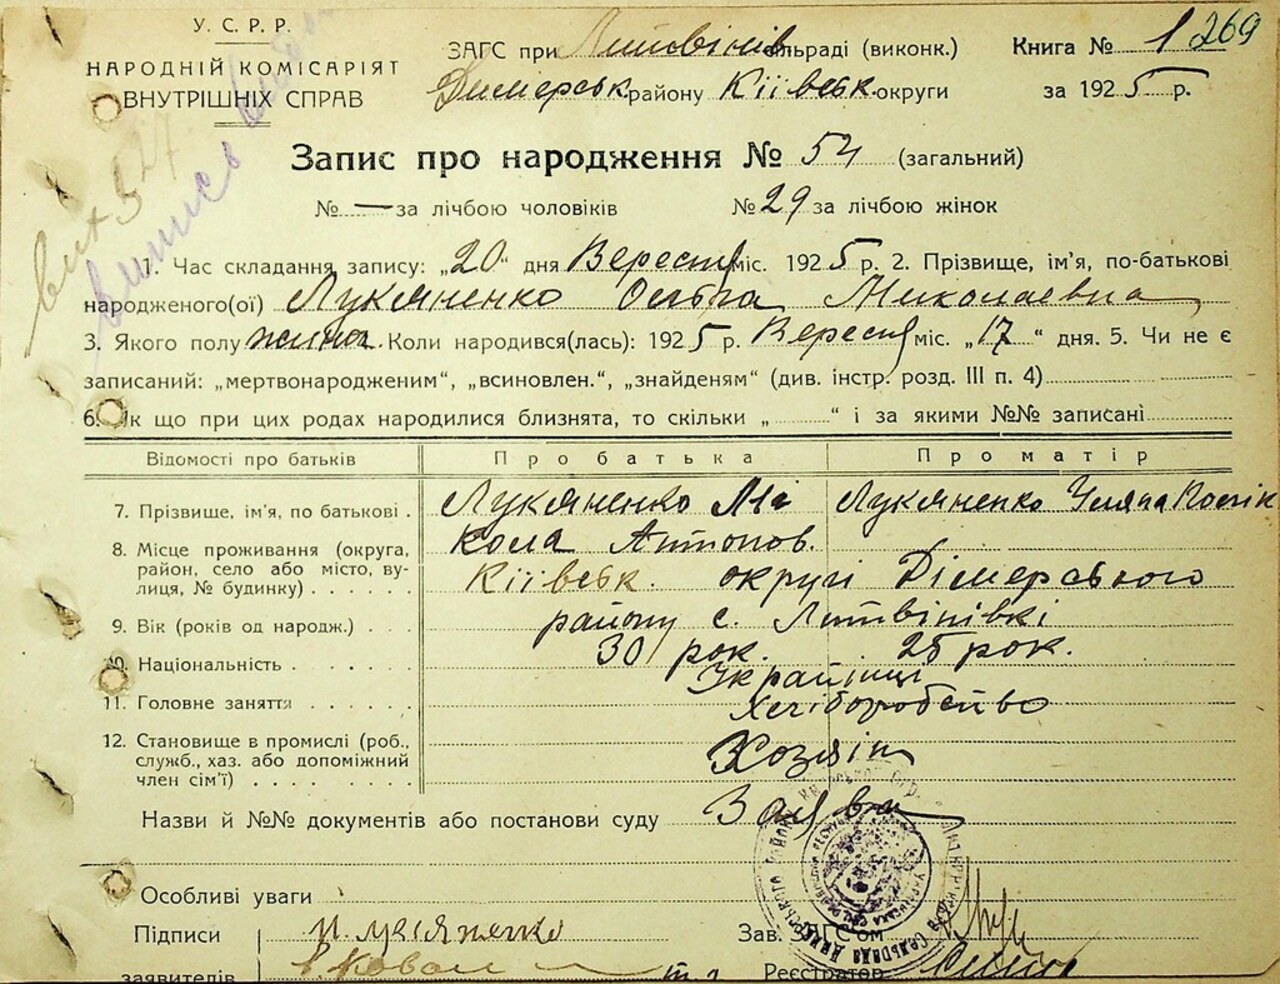 У. С. Р. Р.
НАРОДНІЙ КОМІСАРІЯТ
ВНУТРІШНІХ СПРАВ
ЗАГС при Литвінів сільраді (виконк.)
Димерськ. району Кіівськ. округи
Книга № 1 269
за 1925 р.
Запис про народження № 54 (загальний)
№ — за лічбою чоловіків № 29 за лічбою жінок
випись
1. Час складання запису: „20“ дня Вересня міс. 1925 р. 2. Прізвище, ім'я, по-батькові
народженого(ої) Лукяненко Ольга Миколаевна
3. Якого полу жіноч. Коли народився(лась): 1925 р. Вересня міс. „17“ дня. 5. Чи не є
записаний: „мертвонародженим“, „всиновлен.“, „знайденям“ (див. інстр. розд. III п. 4)
6. Як що при цих родах народилися близнята, то скільки „ “ і за якими №№ записані
Відомості про батьків Про батька Про матір
7. Прізвище, ім'я, по батькові . Лукяненко Мі Лукяненко Уляна
кола Антонов.
8. Місце проживання (округа,
район, село або місто, ву-
лиця, № будинку) . . . . . . Кіівськ. округі Дімерського
району с. Литвінівкі
9. Вік (років од народж.) . . . 30 рок. 25 рок.
10. Національність . . . . . . Украйінці
11. Головне заняття . . . . . . Хліборобство
12. Становище в промислі (роб.,
служб., хаз. або допоміжний
член сім'ї) . . . . . . . . . . Хозяін
Назви й №№ документів або постанови суду Заява
Особливі уваги
Підписи Зав. ЗАГС'ом
заявителів Реєстратор